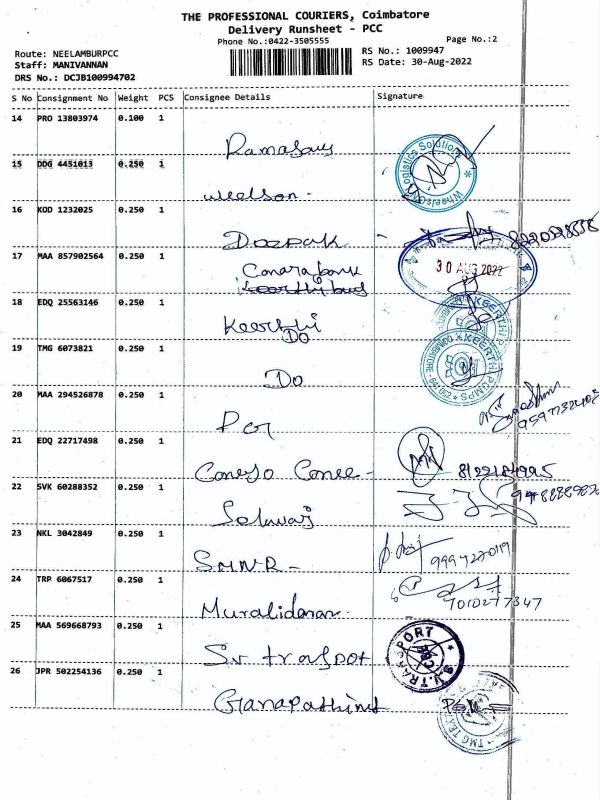 THE PROFESSIONAL COURIERS, Coimbatore
Delivery Runsheet - PCC
Phone No.:0422-3505555 Page No.:2
Route: NEELAMBURPCC RS No.: 1009947
Staff: MANIVANNAN RS Date: 30-Aug-2022
DRS No.: DCJB100994702
S No Consignment No Weight PCS Consignee Details Signature
14 PRO 13803974 0.100 1
Ramasamy
15 DDG 4451013 0.250 1
weelson.
Wheelson Logistics Solutions
16 KOD 1232025 0.250 1
Deepak
17 MAA 857902564 0.250 1
Canara bank
30 AUG 2022
18 EDQ 25563146 0.250 1
Keerthi
Do
KEERTHI P
19 TMG 6073821 0.250 1
Do
KEERTHI PUMPS
20 MAA 294526878 0.250 1
21 EDQ 22717498 0.250 1
22 SVK 60288352 0.250 1
Selvaraj
23 NKL 3042849 0.250 1
SMNR -
24 TRP 6067517 0.250 1
7010277347
Muralidaran.
25 MAA 569668793 0.250 1
S.V. TRANSPORT
CBE
S.v traspot
26 JPR 502254136 0.250 1
TMG TEX